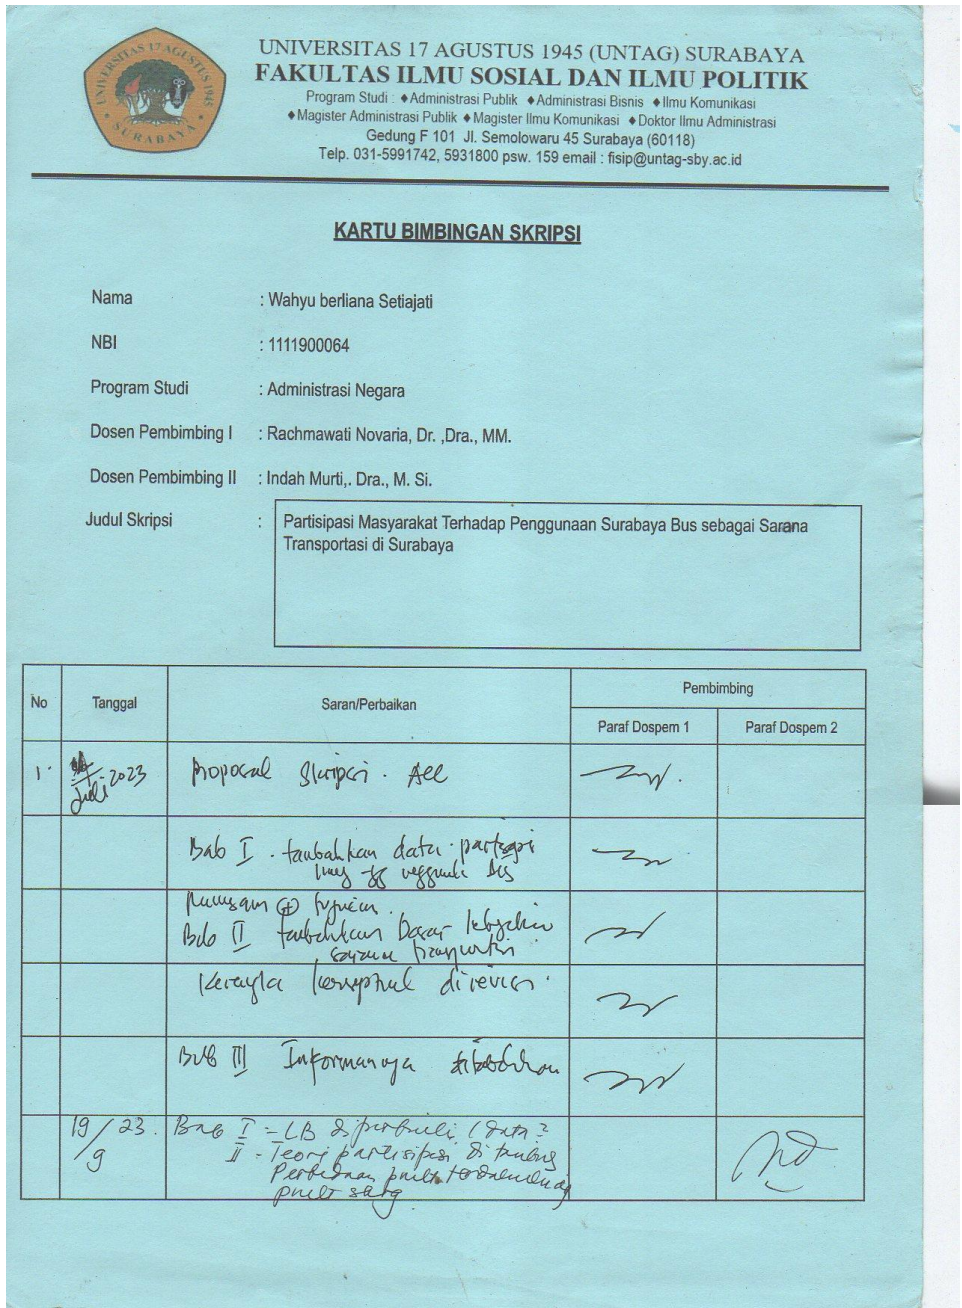 UNIVERSITAS 17 AGUSTUS 1945
SURABAYA
UNIVERSITAS 17 AGUSTUS 1945 (UNTAG) SURABAYA
FAKULTAS ILMU SOSIAL DAN ILMU POLITIK
Program Studi : ♦Administrasi Publik ♦Administrasi Bisnis ♦Ilmu Komunikasi
♦Magister Administrasi Publik ♦Magister Ilmu Komunikasi ♦Doktor Ilmu Administrasi
Gedung F 101 Jl. Semolowaru 45 Surabaya (60118)
Telp. 031-5991742, 5931800 psw. 159 email : fisip@untag-sby.ac.id
KARTU BIMBINGAN SKRIPSI
Nama : Wahyu berliana Setiajati
NBI : 1111900064
Program Studi : Administrasi Negara
Dosen Pembimbing I : Rachmawati Novaria, Dr. ,Dra., MM.
Dosen Pembimbing II : Indah Murti,. Dra., M. Si.
Judul Skripsi : Partisipasi Masyarakat Terhadap Penggunaan Surabaya Bus sebagai Sarana
Transportasi di Surabaya
No Tanggal Saran/Perbaikan Pembimbing
Paraf Dospem 1 Paraf Dospem 2
1. Juli 2023 Proposal Skripsi. Acc
Bab I . tambahkan data partisipasi
Rumusan + tujuan.
Bab II tambahkan Dasar kebijakan
sarana transportasi
Kerangka konseptual direvisi.
Bab III Informannya ditambahkan
19/9 23. Bab I - LB diperbaiki (data ?
II - Teori partisipasi di tambag
Perbedaan penelt. terdahulu dg
penelt skrg